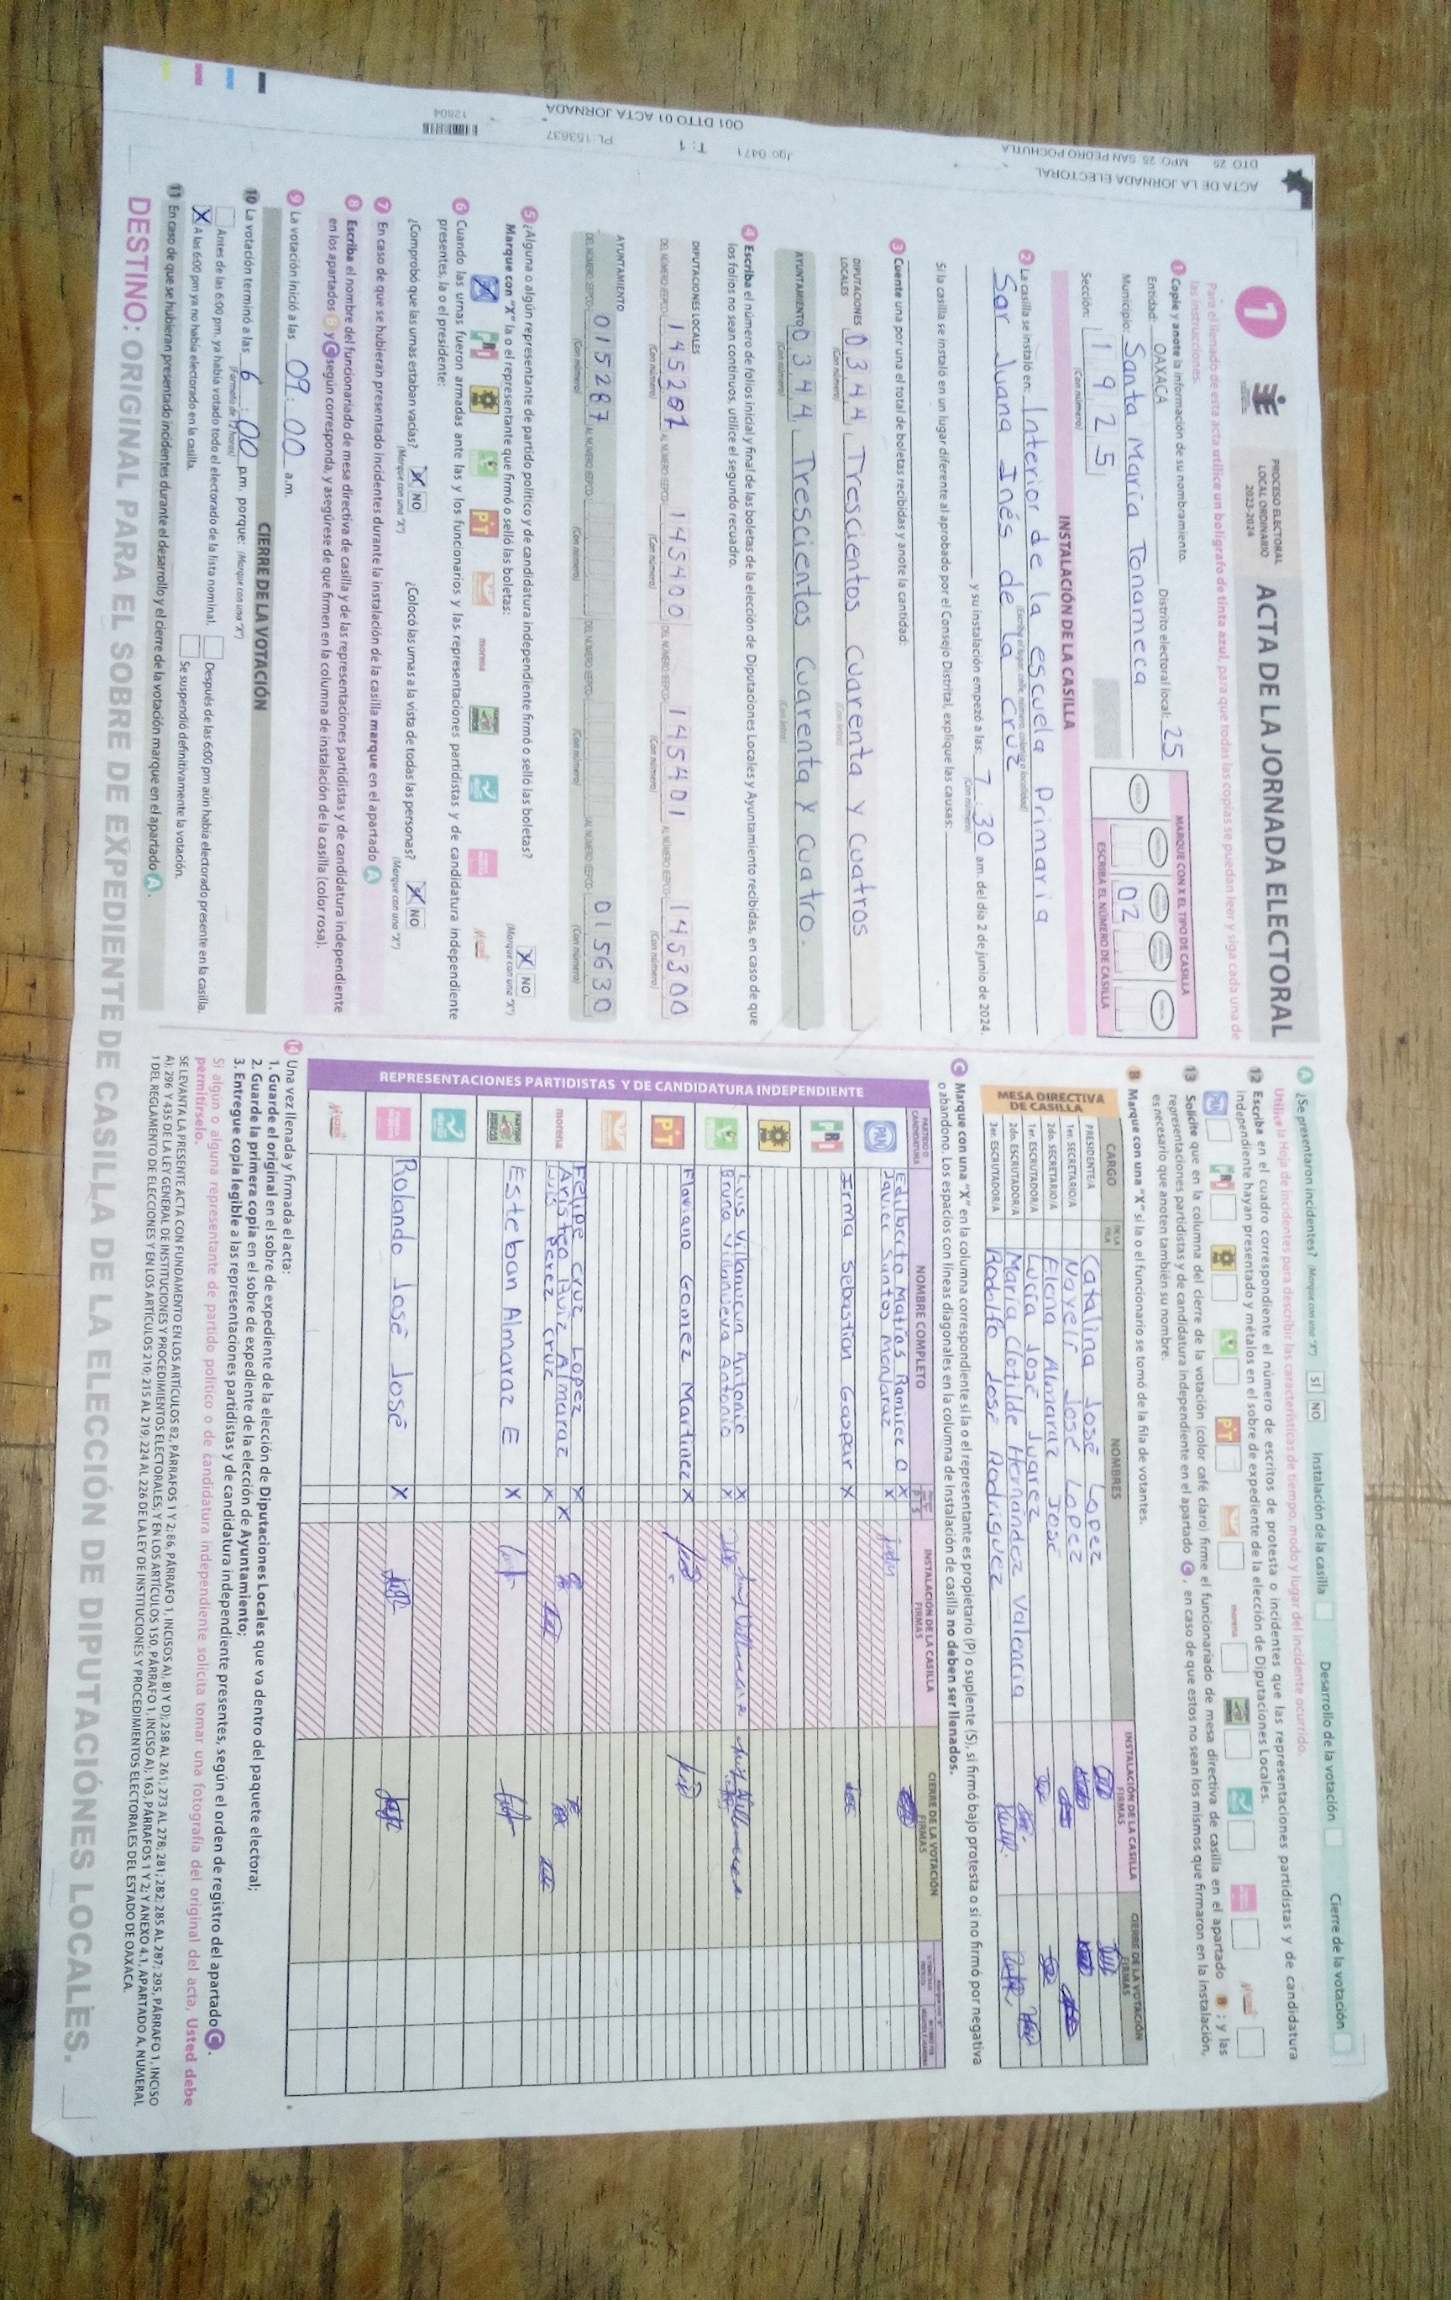 ACTA DE LA JORNADA ELECTORAL
DTO 25 MPO 25 SAN PEDRO POCHUTLA
Jgo: 0471 T: 1 PL-153637
001 DTTO 01 ACTA JORNADA
12804
1
PROCESO ELECTORAL
LOCAL ORDINARIO
2023-2024
ACTA DE LA JORNADA ELECTORAL
Para el llenado de esta acta utilice un bolígrafo de tinta azul, para que todas las copias se puedan leer y siga cada una de
las instrucciones.
1 Copie y anote la información de su nombramiento.
Entidad: OAXACA Distrito electoral local: 25
Municipio: Santa María Tonameca
Sección: 1 9 2 5
(Con número)
MARQUE CON X EL TIPO DE CASILLA
02
ESCRIBA EL NÚMERO DE CASILLA
INSTALACIÓN DE LA CASILLA
2 La casilla se instaló en: Interior de la escuela primaria
Sor Juana Inés de la Cruz
y su instalación empezó a las: 7:30 am. del día 2 de junio de 2024.
(Con número)
Si la casilla se instaló en un lugar diferente al aprobado por el Consejo Distrital, explique las causas:
3 Cuente una por una el total de boletas recibidas y anote la cantidad:
DIPUTACIONES LOCALES 0344, Trescientos cuarenta y cuatros
(Con número) (Con letra)
AYUNTAMIENTO 0344, Trescientos Cuarenta y cuatro.
(Con número) (Con letra)
4 Escriba el número de folios inicial y final de las boletas de la elección de Diputaciones Locales y Ayuntamiento recibidas, en caso de que
los folios no sean continuos, utilice el segundo recuadro.
DIPUTACIONES LOCALES
145287 145400 145401 145300
(Con número) (Con número) (Con número) (Con número)
AYUNTAMIENTO
015287 015630
(Con número) (Con número) (Con número) (Con número)
5 ¿Alguna o algún representante de partido político y de candidatura independiente firmó o selló las boletas? X NO
Marque con "X" la o el representante que firmó o selló las boletas: (Marque con una "X")
PAN PRI PT morena
6 Cuando las urnas fueron armadas ante las y los funcionarios y las representaciones partidistas y de candidatura independiente
presentes, la o el presidente:
¿Comprobó que las urnas estaban vacías? X NO ¿Colocó las urnas a la vista de todas las personas? X NO
(Marque con una "X") (Marque con una "X")
7 En caso de que se hubieran presentado incidentes durante la instalación de la casilla marque en el apartado A
8 Escriba el nombre del funcionariado de mesa directiva de casilla y de las representaciones partidistas y de candidatura independiente
en los apartados B y C según corresponda, y asegúrese de que firmen en la columna de instalación de la casilla (color rosa).
9 La votación inició a las 09:00 a.m.
CIERRE DE LA VOTACIÓN
10 La votación terminó a las 6:00 p.m. porque: (Marque con una "X")
(Formato de 12 horas)
Antes de las 6:00 pm. ya había votado todo el electorado de la lista nominal. Después de las 6:00 pm aún había electorado presente en la casilla.
X A las 6:00 pm ya no había electorado en la casilla. Se suspendió definitivamente la votación.
11 En caso de que se hubieran presentado incidentes durante el desarrollo y el cierre de la votación marque en el apartado A.
A ¿Se presentaron incidentes? (Marque con una "X") SÍ NO Instalación de la casilla Desarrollo de la votación Cierre de la votación
Utilice la Hoja de incidentes para describir las características de tiempo, modo y lugar del incidente ocurrido.
12 Escriba en el cuadro correspondiente el número de escritos de protesta o incidentes que las representaciones partidistas y de candidatura
independiente hayan presentado y métalos en el sobre de expediente de la elección de Diputaciones Locales.
PAN PRI PT morena
13 Solicite que en la columna del cierre de la votación (color café claro) firme el funcionariado de mesa directiva de casilla en el apartado B; y las
representaciones partidistas y de candidatura independiente en el apartado C, en caso de que estos no sean los mismos que firmaron en la instalación,
es necesario que anoten también su nombre.
B Marque con una "X" si la o el funcionario se tomó de la fila de votantes.
MESA DIRECTIVA DE CASILLA
CARGO DE LA FILA NOMBRES INSTALACIÓN DE LA CASILLA FIRMAS CIERRE DE LA VOTACIÓN FIRMAS
PRESIDENTE/A Catalina José Lopez
1er. SECRETARIO/A Nayeli José Lopez
2do. SECRETARIO/A Elena Almaraz José
1er. ESCRUTADOR/A Lucía José Juarez
2do. ESCRUTADOR/A María Clotilde Hernandez Valencia
3er. ESCRUTADOR/A Rodolfo José Rodriguez
C Marque con una "X" en la columna correspondiente si la o el representante es propietario (P) o suplente (S), si firmó bajo protesta o si no firmó por negativa
o abandono. Los espacios con líneas diagonales en la columna de Instalación de casilla no deben ser llenados.
REPRESENTACIONES PARTIDISTAS Y DE CANDIDATURA INDEPENDIENTE
PARTIDO O CANDIDATURA NOMBRE COMPLETO P S INSTALACIÓN DE LA CASILLA FIRMAS CIERRE DE LA VOTACIÓN FIRMAS
PAN Edilberto Matías Ramirez O X
Javier Santos Monjaraz X
PRI Irma Sebastian Gaspar X
Luis Villanueva Antonio X
Bruna Villanueva Antonio X
PT Flaviano Gomez Martinez X
morena Felipe Cruz Lopez X
Aristeo Ruiz Almaraz X
Luis Perez Cruz X
Esteban Almaraz E X
Rolando José José X
14 Una vez llenada y firmada el acta:
1. Guarde el original en el sobre de expediente de la elección de Diputaciones Locales que va dentro del paquete electoral;
2. Guarde la primera copia en el sobre de expediente de la elección de Ayuntamiento;
3. Entregue copia legible a las representaciones partidistas y de candidatura independiente presentes, según el orden de registro del apartado C.
Si algún o alguna representante de partido político o de candidatura independiente solicita tomar una fotografía del original del acta, Usted debe
permitírselo.
SE LEVANTA LA PRESENTE ACTA CON FUNDAMENTO EN LOS ARTÍCULOS 82, PÁRRAFOS 1 Y 2; 86, PÁRRAFO 1, INCISOS A), B) Y D); 258 AL 261; 273 AL 278; 281; 282; 285 AL 287; 295, PÁRRAFO 1, INCISO
A); 296 Y 435 DE LA LEY GENERAL DE INSTITUCIONES Y PROCEDIMIENTOS ELECTORALES; Y EN LOS ARTÍCULOS 150, PÁRRAFO 1, INCISO A); 163, PÁRRAFOS 1 Y 2; Y ANEXO 4.1, APARTADO A, NUMERAL
1 DEL REGLAMENTO DE ELECCIONES Y EN LOS ARTÍCULOS 210; 215 AL 219; 224 AL 226 DE LA LEY DE INSTITUCIONES Y PROCEDIMIENTOS ELECTORALES DEL ESTADO DE OAXACA.
DESTINO: ORIGINAL PARA EL SOBRE DE EXPEDIENTE DE CASILLA DE LA ELECCIÓN DE DIPUTACIONES LOCALES.